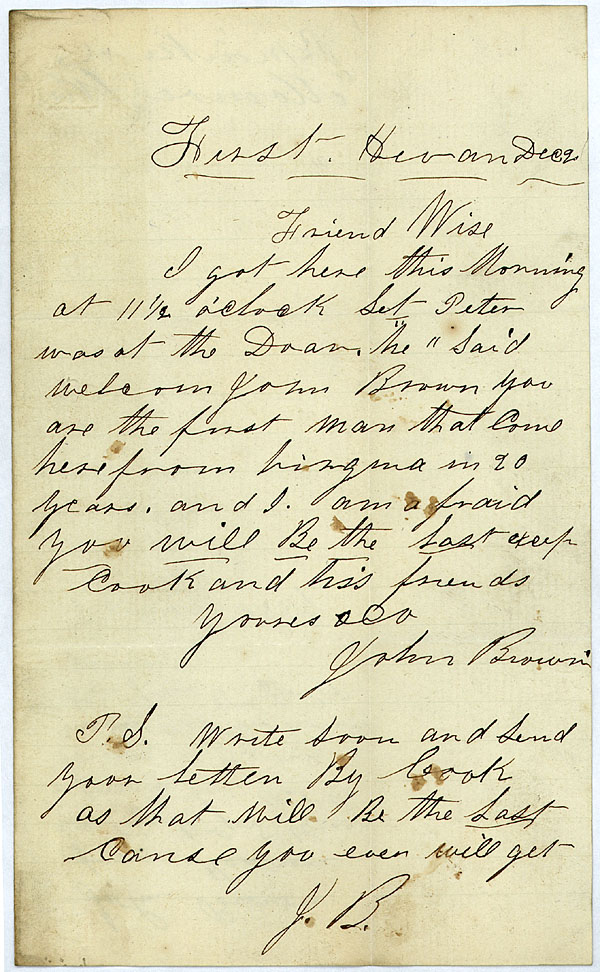 First. Hevan Dec 2
Friend Wise
I got here this Morning
at 11 1/2 o'clock Set Peter
was at the Doar. he "Said
welcom John Brown you
are the first man that Come
here from virginia in 20
years. and I. am afraid
you will Be the Last excep
Cook and his friends
Youres &co
John Brown
P. S. Write soon and send
your letter By Cook
as that will Be the Last
Canse you ever will get
J. B.